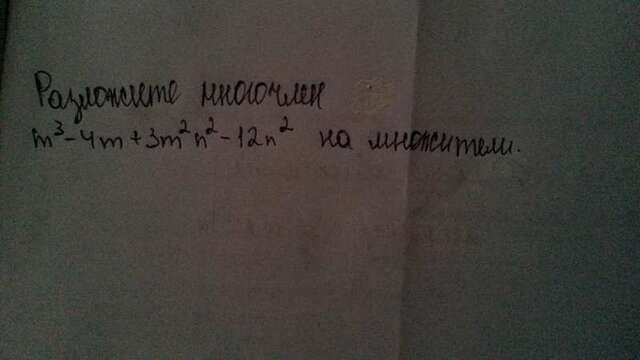 Разложите многочлен
m³-4m+3m²n²-12n² на множители.